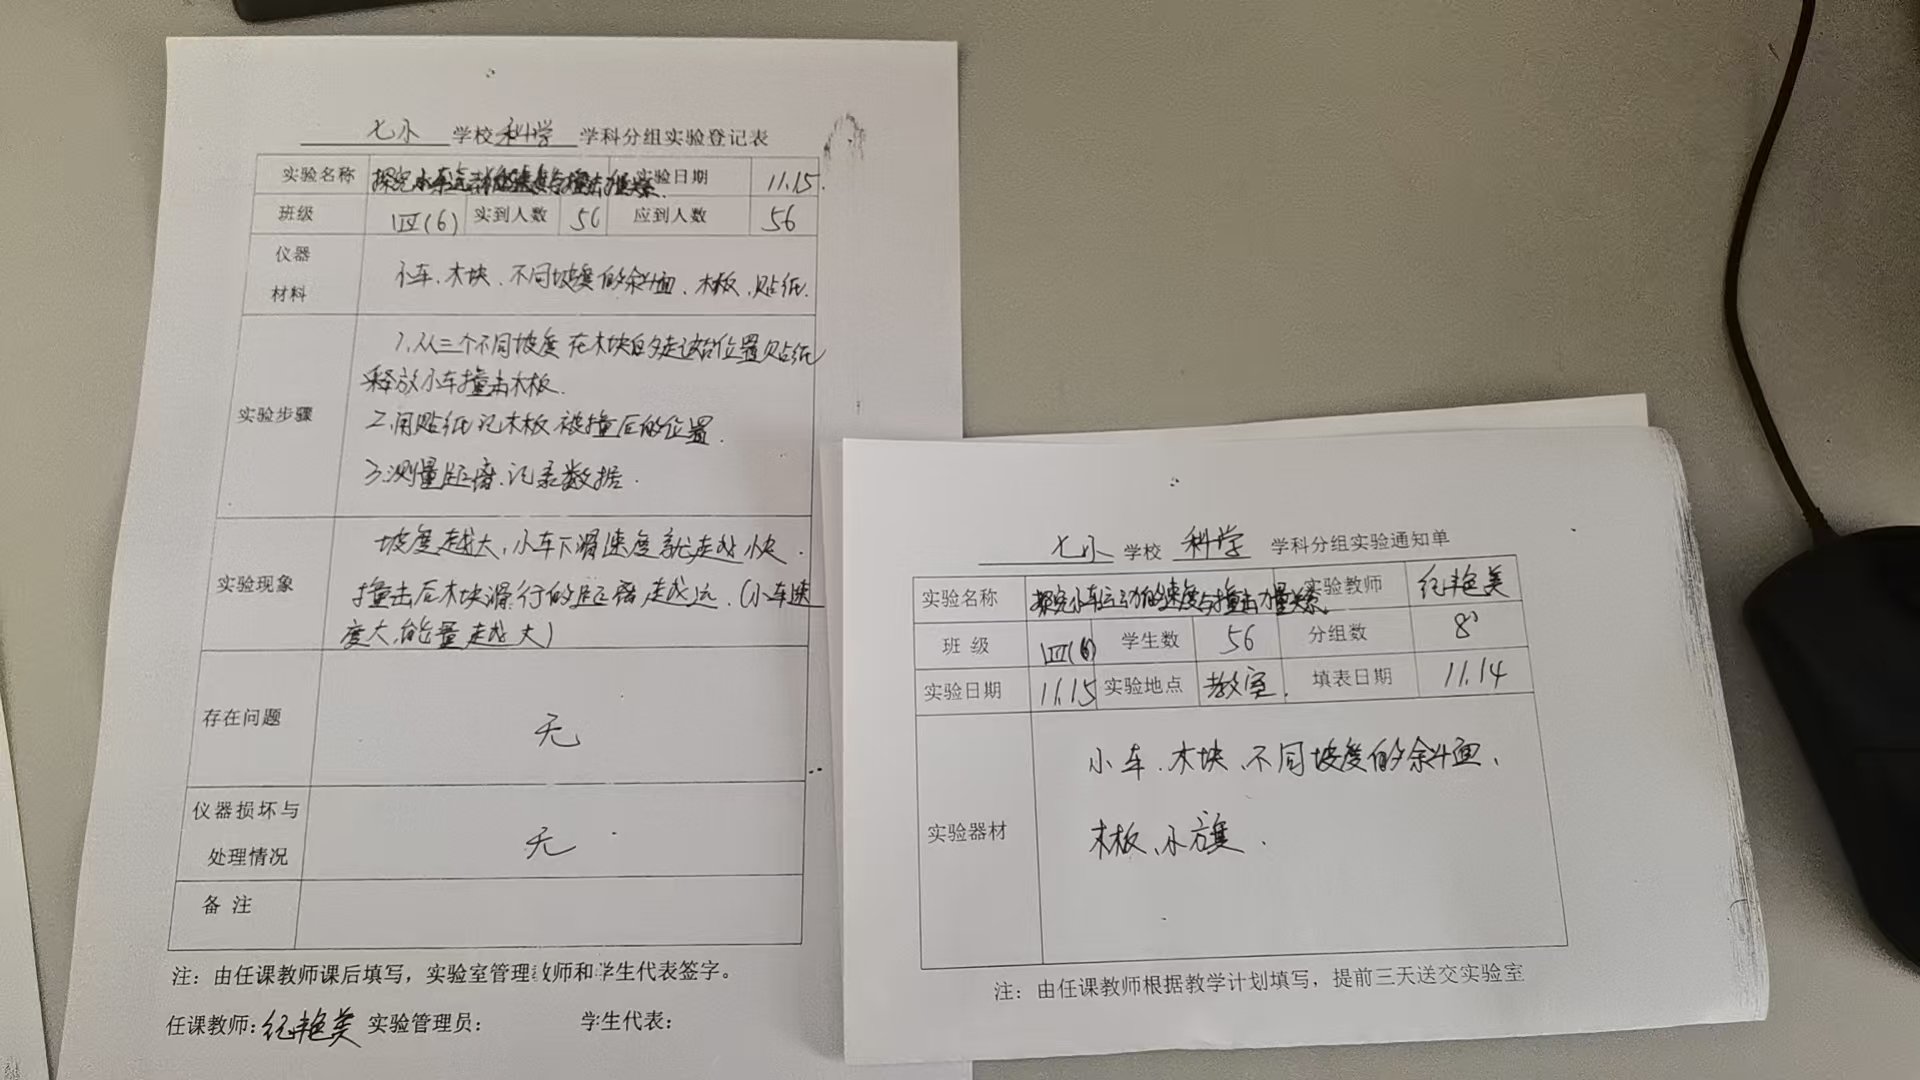 七小 学校 科学 学科分组实验登记表
实验名称 探究小车运动的速度与撞击力量关系. 实验日期 11.15.
班级 四(6) 实到人数 56 应到人数 56
仪器
材料
小车、木块、不同坡度的斜面、木板、贴纸.
实验步骤
1.从三个不同坡度在木块的起始位置贴纸
释放小车撞击木板.
2.用贴纸记木板被撞后的位置.
3.测量距离、记录数据.
实验现象
坡度越大,小车下滑速度就越快.
撞击后木块滑行的距离越远.(小车速
度大,能量越大)
存在问题 无
仪器损坏与
处理情况
无
备 注
注:由任课教师课后填写,实验室管理教师和学生代表签字。
任课教师:纪艳美 实验管理员: 学生代表:
七小 学校 科学 学科分组实验通知单
实验名称 探究小车运动的速度与撞击力量关系 实验教师 纪艳美
班 级 四(6) 学生数 56 分组数 8
实验日期 11.15 实验地点 教室. 填表日期 11.14
实验器材
小车、木块、不同坡度的斜面、
木板、小旗.
注:由任课教师根据教学计划填写,提前三天送交实验室